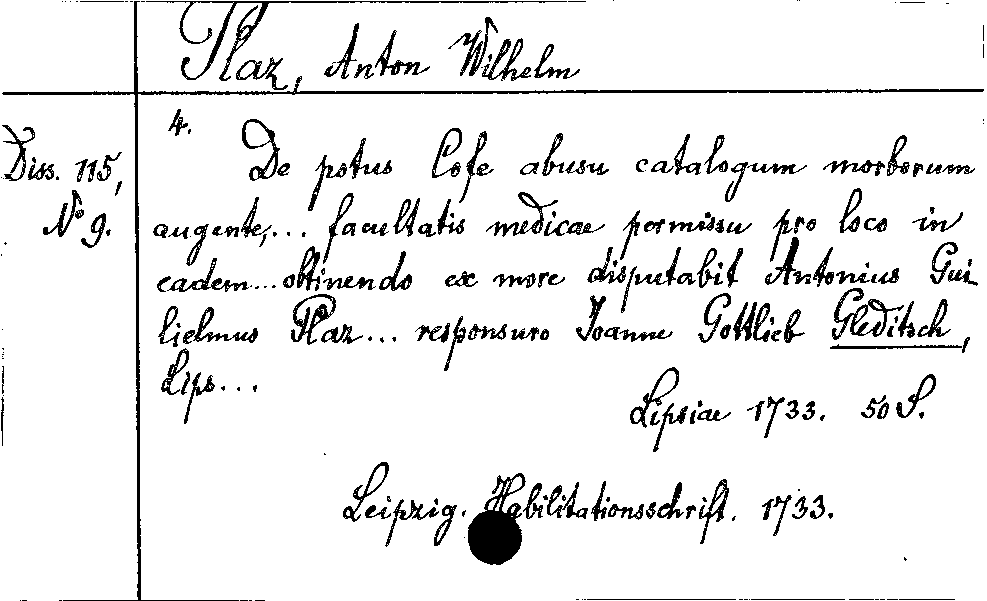 Plaz, Anton Wilhelm
Diss. 115,
No 9.
4.
De potus Cofe abusu catalogum morborum
augente,... facultatis medicae permissu pro loco in
eadem... obtinendo ex more disputabit Antonius Gui-
lielmus Plaz... responsuro Joanne Gottlieb Gleditsch,
Lips...
Lipsiae 1733. 50 S.
Leipzig. Habilitationsschrift. 1733.